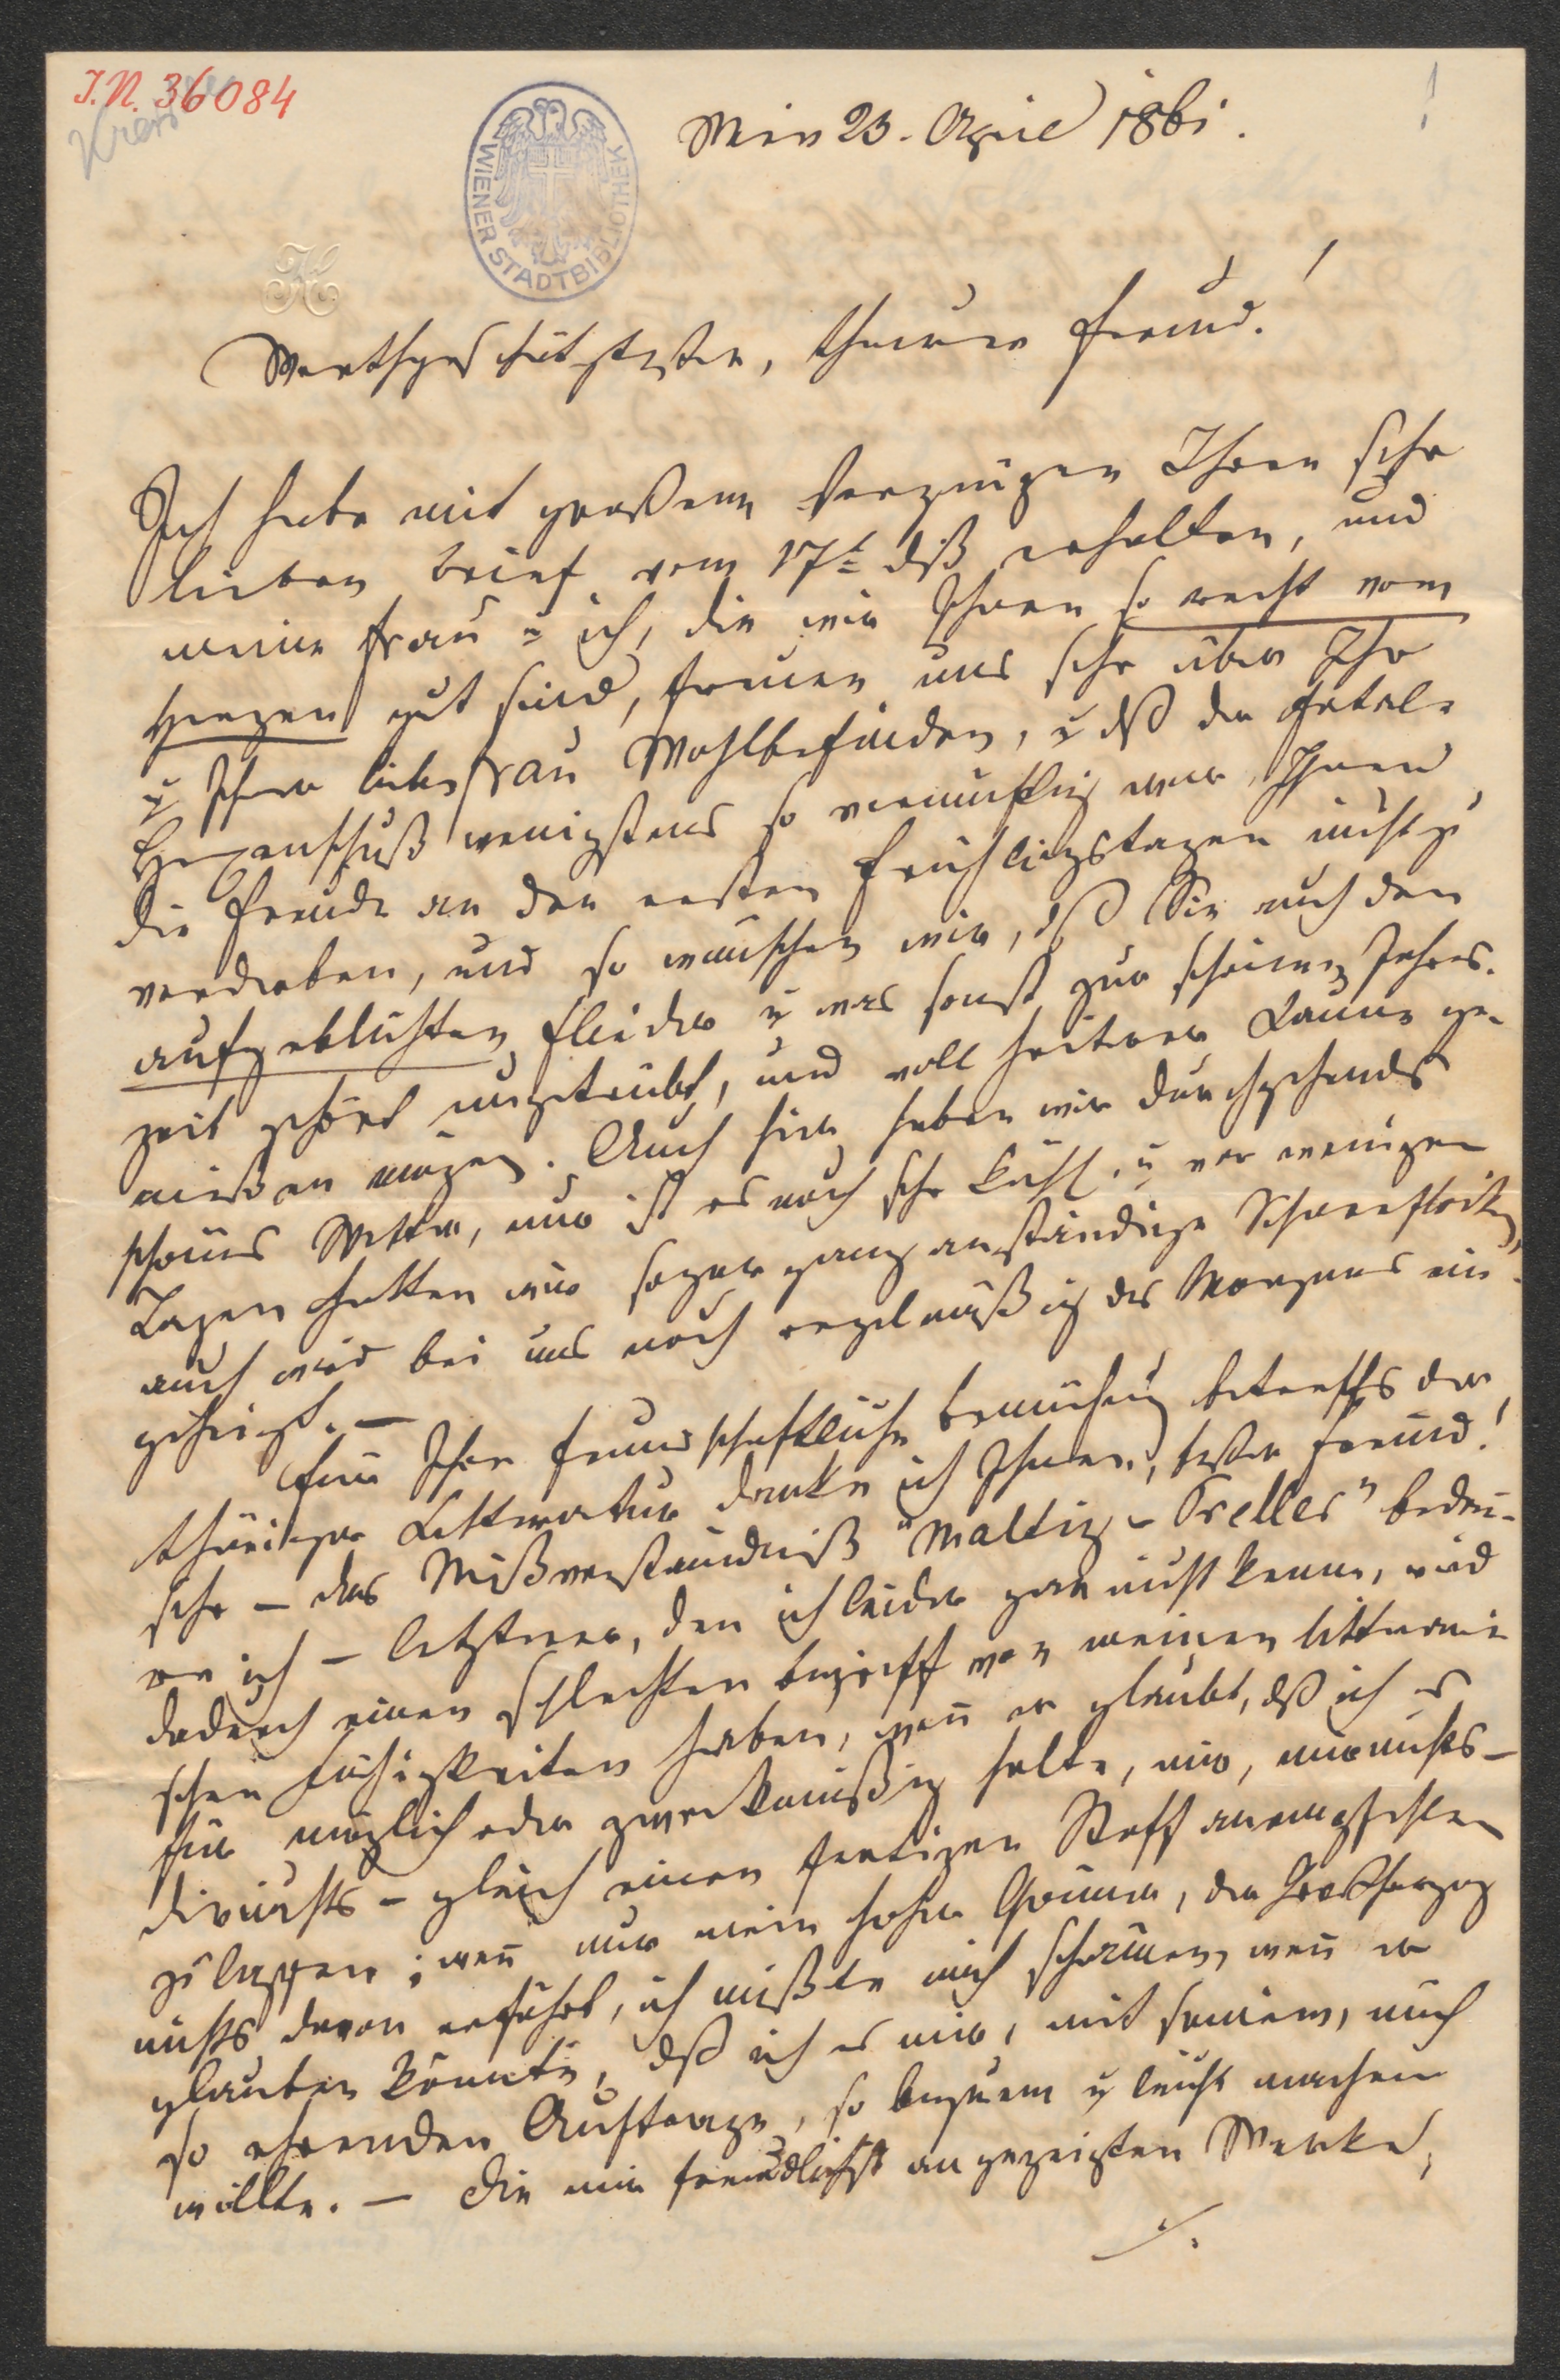 I.N. 36084
WIENER STADTBIBLIOTHEK
H
Wien 23. April 1861.
Werthgeschätztester, theurer Freund!
Ich habe mit großem Vergnügen Ihren sehr
lieben Brief vom 17t dß erhalten, und
meine Frau u ich, die wir Ihnen so recht vom
Herzen gut sind, freuen uns sehr über Ihr
u Ihrer lieben Frau Wohlbefinden, u dß der fatale
Hexenschuß wenigstens so vernünftig war, Ihnen
die Freude an den ersten Frühlingstagen nicht zu
verderben, und so wünschen wir, dß Sie auch den
aufgeblühten Flieder u was sonst zur schönen Jahres-
zeit gehört ungetrübt, und voll heiterer Laune ge-
nießen mögen. Auch hier haben wir durchgehends
schönes Wetter, nur ist es noch sehr kühl, u vor wenigen
Tagen hatten wir sogar ganz anständige Schneeflocken,
auch wird bei uns noch regelmäßig des Morgens ein-
geheizt. —
Für Ihre freundschaftliche Bemühung betreffs der
thüringer Litteratur danke ich Ihnen, bester Freund!
sehr — das Mißverständniß "Maltiz - Treller" bedau-
re ich — letzterer, den ich leider gar nicht kenne, wird
dadurch einen schlechten Begriff von meinen litterari-
schen Fähigkeiten haben, wenn er glaubt, dß ich es
für möglich oder zweckmäßig halte, mir, mirnichts-
dirnichts — gleich einen fertigen Stoff anempfehlen
zu lassen; wenn nur mein hoher Gönner, der Großherzog
nichts davon erfährt, ich müßte mich schämen, wenn er
glauben könnte, dß ich es mir, mit seinem, mich
so ehrenden Auftrage, so bequem u leicht machen
wollte. — Die mir freundlichst angezeigten Werke,
./.